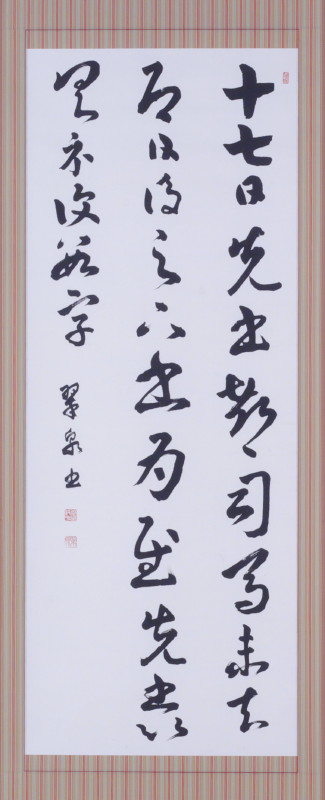 十七日先書郗司馬未去
即日得足下書為慰先書以
具示復數字
翠泉書